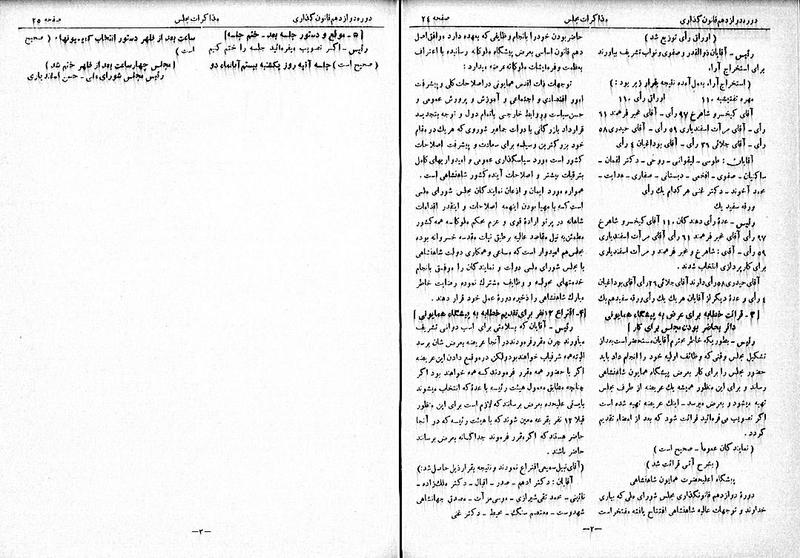 دوره دوازدهم قانون گذاری
مذاکرات مجلس
صفحه ۲٤
( اوراق رأی توزیع شد )
رئیس ـ آقایان ذوالقدر و صفوی و نواب تشریف بیاورند
برای استخراج آراء.
( استخراج آراء بعمل آمده نتیجه بقرار زیر بود : )
مهره تفتیشیه ۱۱۰ اوراق رأی ۱۱۰
آقای کیخسرو شاهرخ ۹۷ رأی ـ آقای عبیر فرهمند ٦۱
رأی ـ آقای مرآت اسفندیاری ٥۹ رأی ـ آقای حیدری ٥۸
رأی ـ آقای جلائی ۲٦ رأی ـ آقای بوداغیان ٤ رأی
آقایان : طوسی ـ لیقوانی ـ روحی ـ دکتر لقمان ـ
ساکنیان ـ صفوی ـ افخمی ـ دبستانی ـ صفاری ـ هدایت ـ
محمد آخوند ـ دکتر غنی هر کدام یك رأی
ورقه سفید یك
رئیس ـ عدۀ رأی دهندگان ۱۱۰ آقای کیخسرو شاهرخ
۹۷ رأی آقای عبیر فرهمند ٦۱ رأی آقای مرآت اسفندیاری
٥۹ رأی ـ آقای : شاهرخ و عبیر فرهمند و مرآت اسفندیاری
برای کارپردازی انتخاب شدند .
آقای حیدری ٥۸ رأی دارند آقای جلائی ۲٦ رأی آقای بوداغیان
٤ رأی و عدۀ دیگر از آقایان هر یك یك رأی ورقه سفید هم یك
[ ۳ ـ قرائت خطابه برای عرض به پیشگاه همایونی
دائر بحاضر بودن مجلس برای کار ]
رئیس ـ بطوریکه خاطر محترم آقایان مستحضر است بعد از
تشکیل مجلس وقتی که وظائف اولیه خود را انجام داد باید
حضور مجلس را برای کار بعرض پیشگاه همایون شاهنشاهی
رساند و برای این منظور همیشه یك عریضه از طرف مجلس
تهیه میشود و بعرض میرسد ـ اینك عریضه تهیه شده است
اگر تصویب می فرمائید قرائت شود که بعد از امضاء تقدیم
گردد .
( نمایندگان عموماً ـ صحیح است )
( بشرح آتی قرائت شد )
پیشگاه اعلیحضرت همایون شاهنشاهی
دورۀ دوازدهم قانونگذاری مجلس شورای ملی که بیاری
خداوند و توجهات عالیه شاهنشاهی افتتاح یافته مفتخر است
حاضر بودن خود را بانجام وظایفی که بعهده دارد و وفق اصل
دهم قانون اساسی بعرض پیشگاه ملوکانه رسانیده با اعتراف
بعظمت و فرمایشات ملوکانه عرضه میدارد :
توجهات ذات اقدس همایونی در اصلاحات کلی و پیشرفت
امور اقتصادی و اجتماعی و آموزش و پرورش عمومی و
حسن سیاست و روابط خارجی با تمام دول و توجه بتجدید
قرارداد بازرگانی با دولت جماهیر شوروی که هر یك در مقام
خود بزرگترین وسیله برای سعادت و پیشرفت اصلاحات
کشور است مورد سپاسگذاری عمومی و امیدواریهای کامل
بترقیات بیشتر و اصلاحات آینده کشور شاهنشاهی است .
همواره مورد ایمان و اذعان نمایندگان مجلس شورای ملی
است که با مهیا بودن اینهمه اصلاحات و اینقدر اقدامات
شاهانه در پرتو ارادۀ قوی و عزم محکم ملوکانه همه کشور
مطمئن به نیل مقاصد عالیه بر طبق نیات مقدسه خسروانه بوده
مجلس هم امیدوار است که مساعی و همکاری دولت شاهنشاهی
با مجلس شورای ملی دولت و نمایندگان را موفق بانجام
خدمتهای محوله و وظایف مشترك نموده رضایت خاطر
مبارك شاهنشاهی را ذخیره دورۀ عمل خود قرار دهند .
[ ٤ ـ اقتراع ۱۲ نفر برای تقدیم خطابه به پیشگاه همایونی ]
رئیس ـ آقایان که بسلامتی برای اسب دوانی تشریف
میاورند چون مقرر فرمودند در آنجا عریضه بعرض شان برسد
البته همه شرفیاب خواهند بود ولکن در موقع دادن این عریضه
اگر با حضور همه مقرر فرمودند که همه خواهند بود اگر
چنانچه مطابق معمول هیئت رئیسه با عدۀ که انتخاب میشوند
بایستی علیحده بعرض برسانند که لازم است برای این منظور
قبلا ۱۲ نفر بقرعه معین شوند که با هیئت رئیسه که در آنجا
حاضر هستند که اگر مقرر فرموند جداگانه بعرض برسانند
حاضر باشند .
(آقای نبیل سمیعی اقتراع نمودند و نتیجه بقرار ذیل حاصل شد:)
آقایان : دکتر ادهم ـ صدر ـ اقبال ـ دکتر ملك زاده ـ
نائینی ـ محمد تقی شیرازی ـ موسی مرآت ـ مصدق جهانشاهی
شهدوست ـ معتصم سنگ ـ محیط ـ دکتر غنی
ـ۲ـ
دوره دوازدهم قانون گذاری
مذاکرات مجلس
صفحه ۲٥
[ ٥ ـ موقع و دستور جلسه بعد ـ ختم جلسه ]
رئیس ـ اگر تصویب میفرمائید جلسه را ختم کنیم
( صحیح است ) جلسه آتیه روز یکشنبه بیستم آبانماه دو
ساعت بعد از ظهر دستور انتخاب کمیسیونها ( صحیح
است )
[ مجلس چهار ساعت بعد از ظهر ختم شد ]
رئیس مجلس شورای ملی ـ حسن اسفندیاری
ـ۳ـ